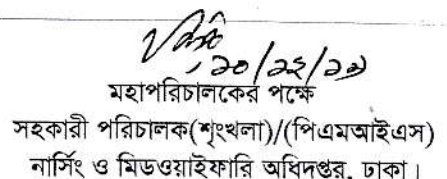 ২০/১২/১৯
মহাপরিচালকের পক্ষে
সহকারী পরিচালক(শৃংখলা)/(পিএমআইএস)
নার্সিং ও মিডওয়াইফারি অধিদপ্তর, ঢাকা।